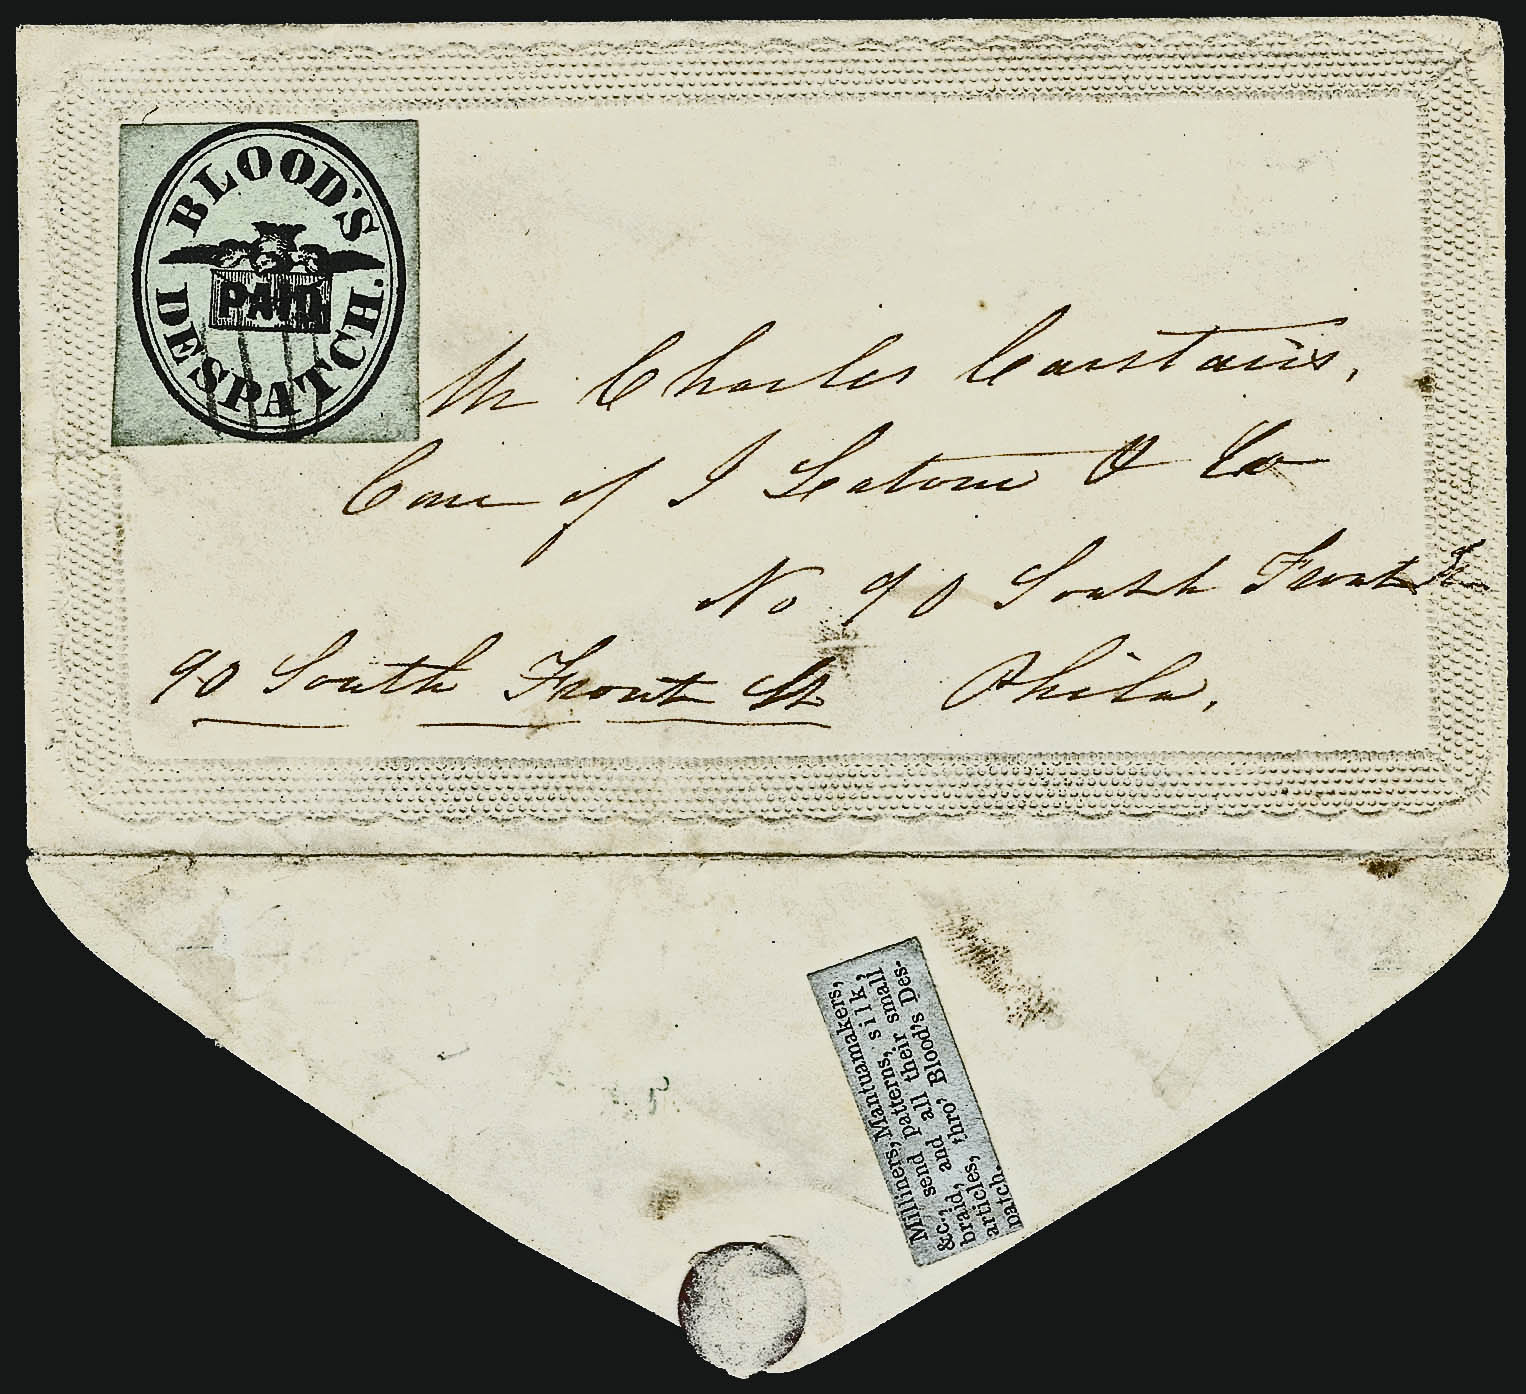 BLOOD'S
PAID
DESPATCH.
Mr Charles Carstairs,
Care of J Eatone & Co
No 90 South Front St
90 South Front St Phila,
Milliners, Mantuamakers,
&c., send patterns, silk,
braid, and all their small
articles, thro' Blood's Des-
patch.